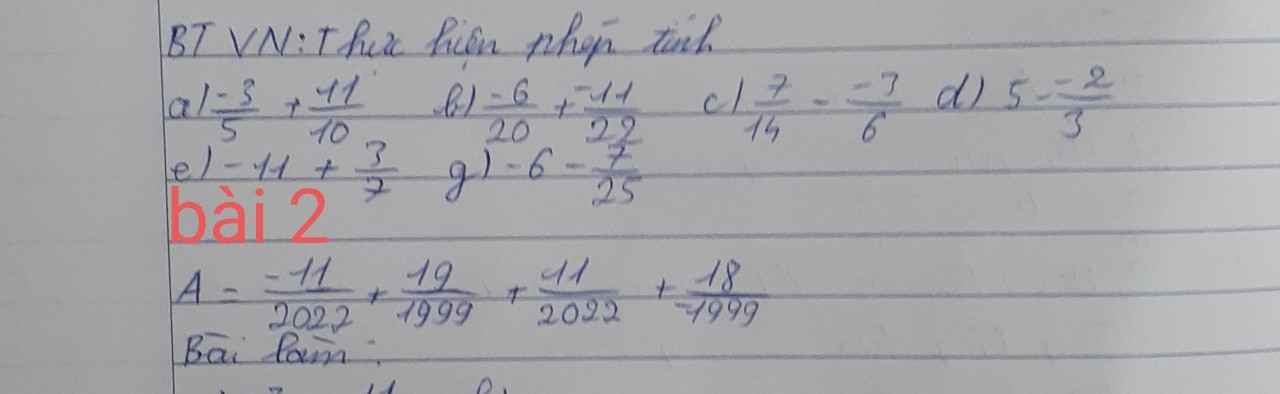 BT VN: Thực hiện phép tính
a) -3/5 + 11/10 b) -6/20 + -11/22 c) 7/14 - -3/6 d) 5 - -2/3
e) -11 + 3/7 g) -6 - 7/25
bài 2
A = -11/2022 + 19/1999 + 11/2022 + 18/-1999
Bài làm: